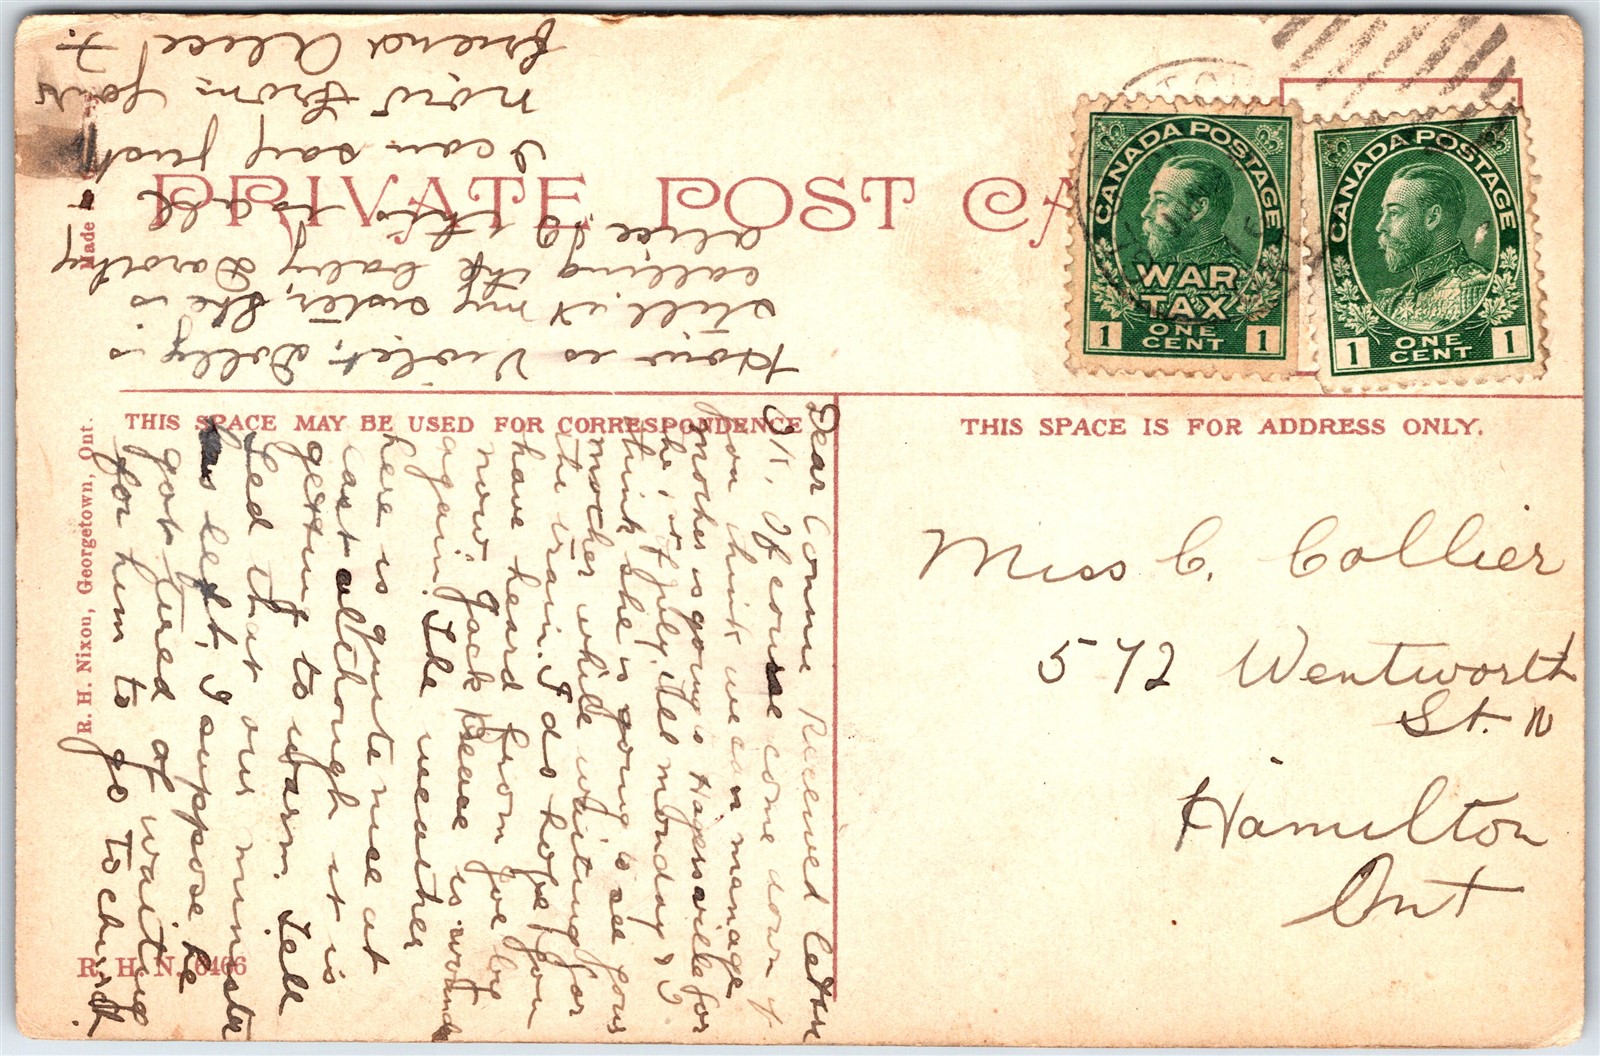 PRIVATE POST CA
CANADA POSTAGE
WAR
TAX
1 ONE CENT 1
CANADA POSTAGE
1 ONE CENT 1
THIS SPACE MAY BE USED FOR CORRESPONDENCE
THIS SPACE IS FOR ADDRESS ONLY.
Made
R. H. Nixon, Georgetown, Ont.
R. H. N. 6466
Miss C. Collier
572 Wentworth
St. N
Hamilton
Ont
Dear Connie Received letter
OK, Of course come down if
you think we can manage
mother is going to Hagersville for
the 1st July, till monday & I
think she is going to see your
mother while waiting for
the train. I do hope you
have heard from Joe by
now Jack is wound
again. The weather
here is quite nice at
last although it is
getting to warm. Tell
Ted that our minister
has left, I suppose he
got tired of waiting
for him to go to church.
How is Violet, Dolly is
still at my sister, She is
calling the baby Dorothy
Alice so this is all
I can say just
now from your
friend Alice F.